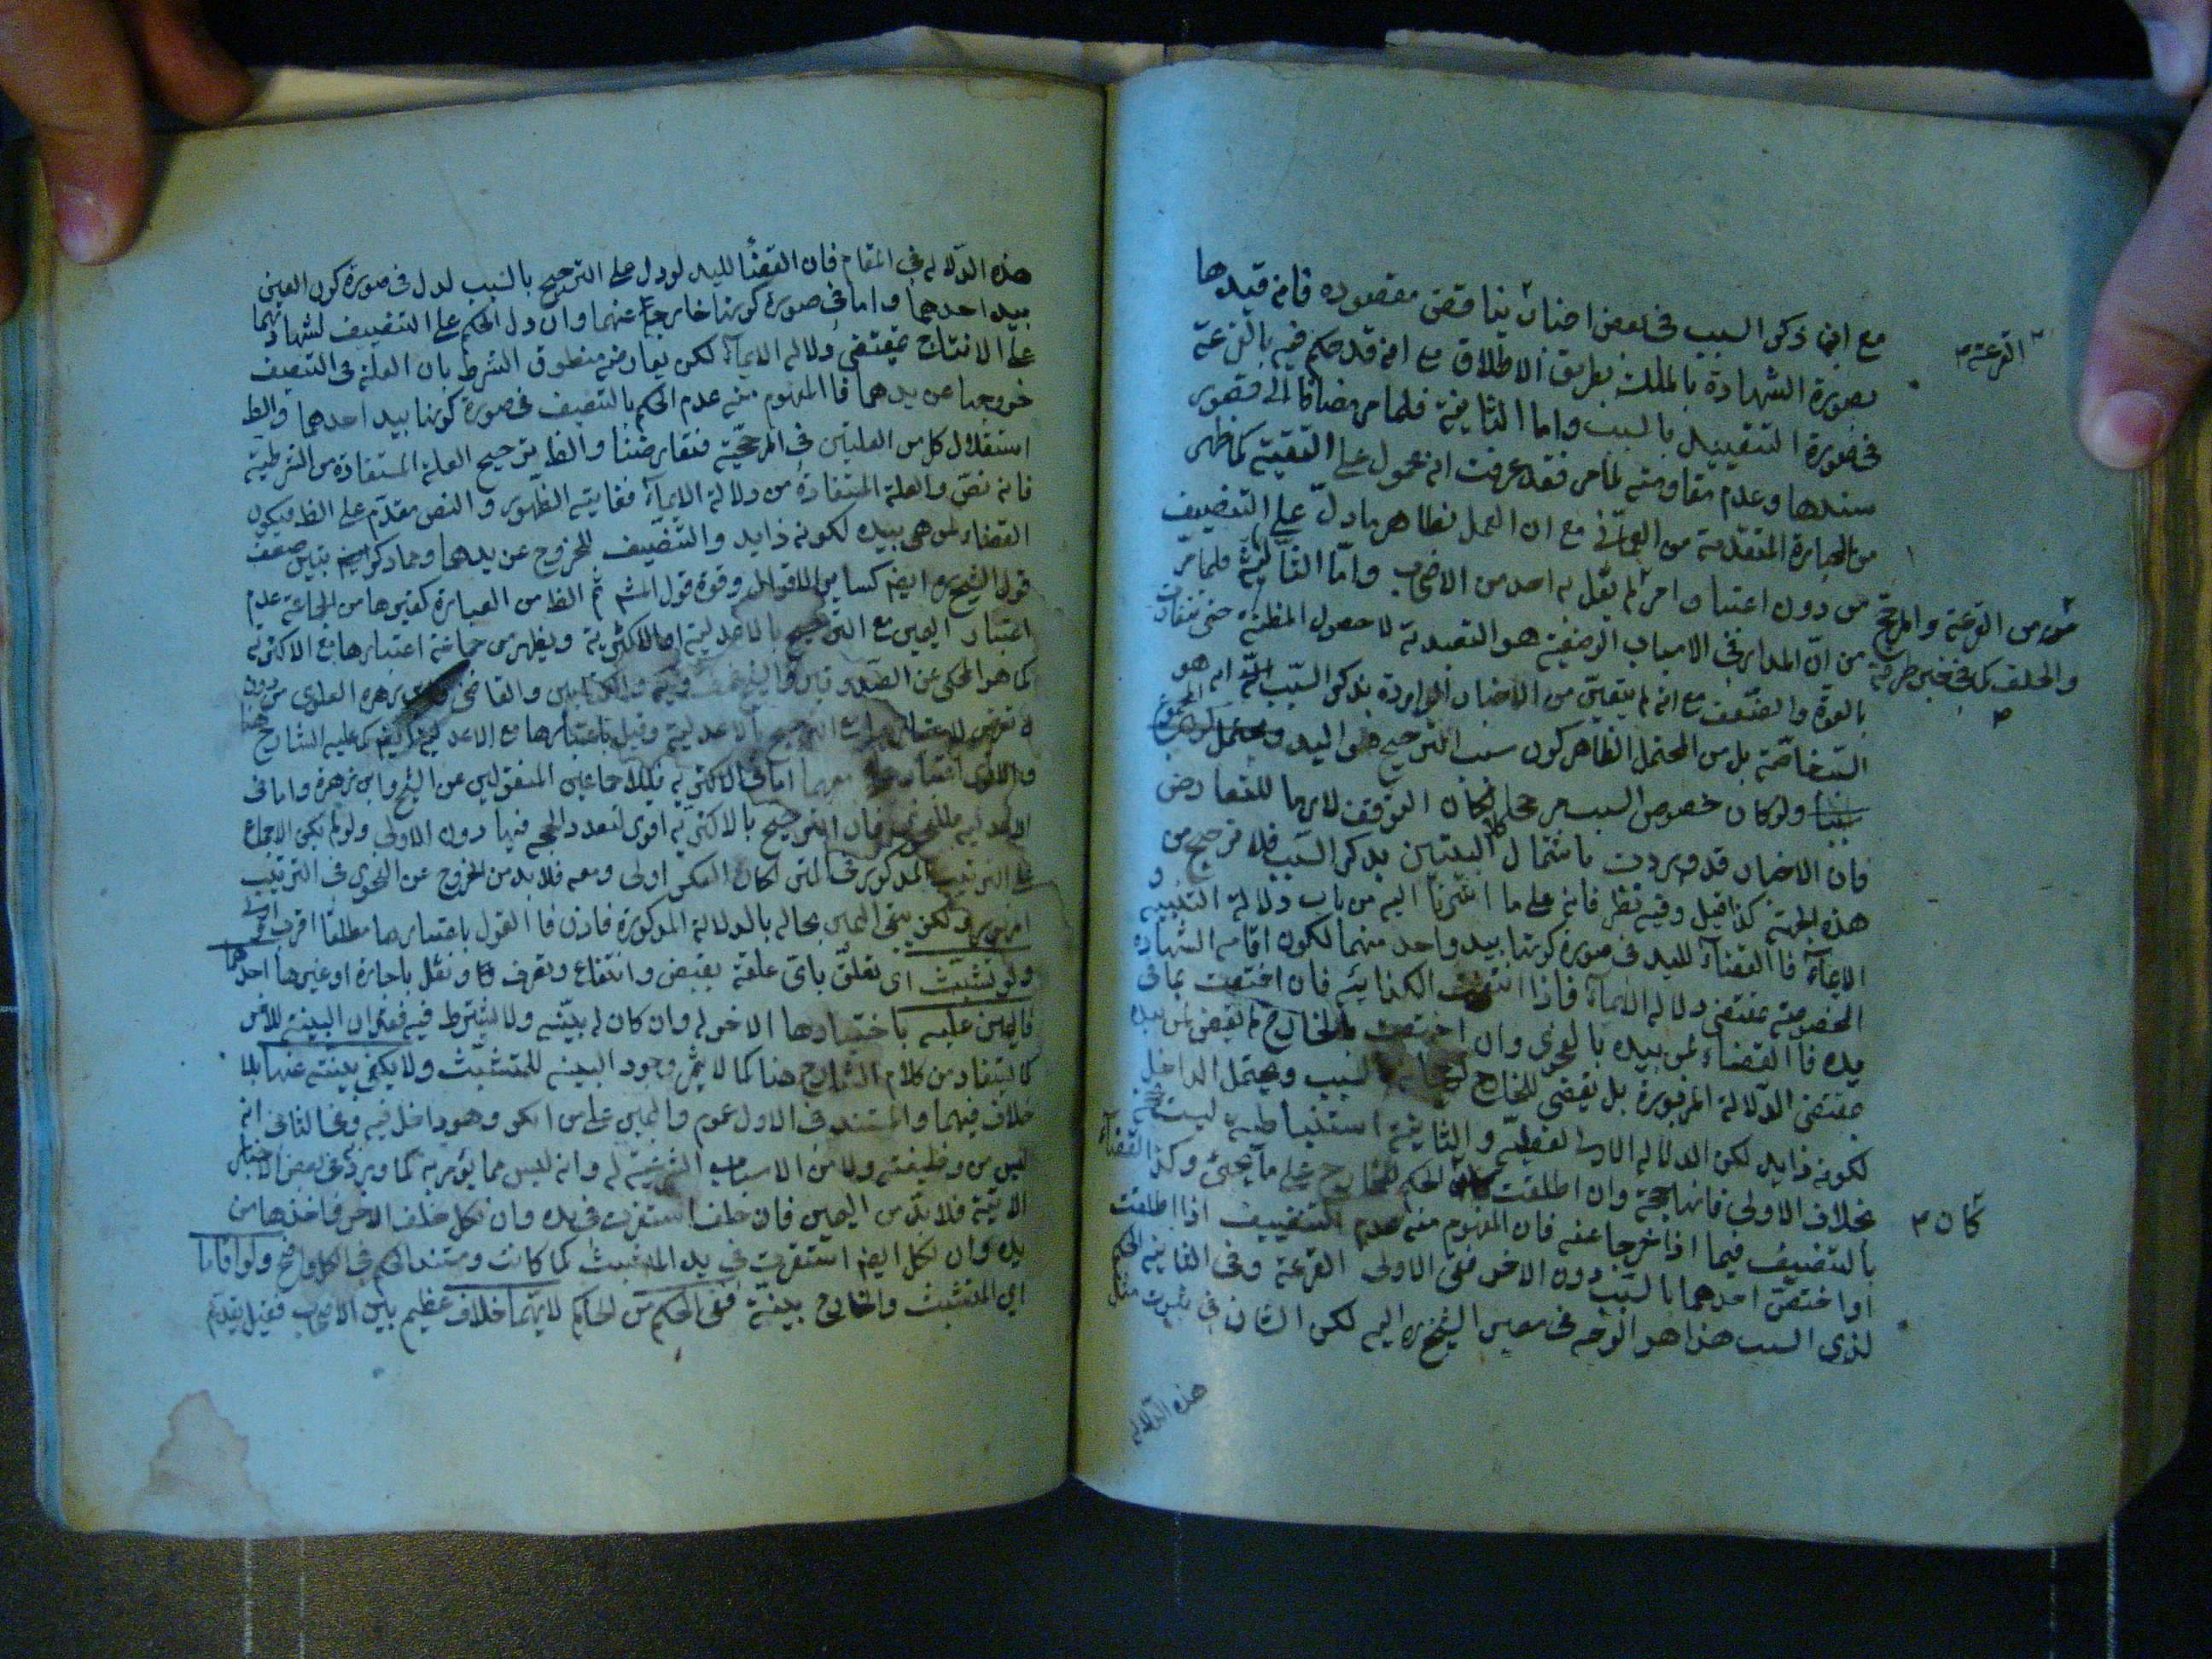 مع ان ذكر السبب فى بعض اخبار يناقض مقصوده فانه قيدها
بصورة الشهادة بالملك بطريق الاطلاق مع انه قد حكم فيه بالقرعة
فى صورة التقييد بالسبب واما الثانية فلما مر مضافا الى قصور
سندها وعدم مقاومته لما مر فقد عرفت انه محمول على التقية كما يظهر
من العبارة المتقدمة من العمانى مع ان العمل بظاهر ما دل على التنصيف
من دون اعتبار امر لم يقل به احد من الاصحاب واما الثالثة فلما مر
من ان المدار فى الاسباب الوضعية هو التعبدية لا حصول المظنة حتى تتفاوت
بالقوة والضعف مع انه لم يتعين من الاخبار الواردة بذكر السبب انه هو
بل من المحتمل الظاهر كون سبب الترجيح هو اليد ويحتمل
ولو كان خصوص السبب مرجحا لكان التوقف لازما للتعارض
فان الاخبار قد وردت باشتمال كلا البينتين بذكر السبب فلا ترجيح من
هذه الجهة كذا قيل وفيه نظر فانه على ما اشرنا اليه من باب دلالة التنبيه و
الايماء فالقضاء لليد فى صورة كونها بيد واحد منهما لكون اقامه الشهاده
المخصوصة بمقتضى دلاله الايماء فاذا انتفت الكذائية فان اختصت بما فى
يده فالقضاء لمن بيده بالفحوى وان اختصت بالخارج لم يقض لمن بيده
بمقتضى الدلالة المزبورة بل يقضى للخارج السبب ويحتمل الداخل
لكونه ذايد لكن الدلاله الاولى لفظية والثانية استنباطيه ليست بحجة
بخلاف الاولى فانها حجة وان اطلقت الحكم للخارج على ما يجئ وكذا القضاء
بالتنصيف فيما اذا خرجا عنه فان المفهوم منه عدم التنصيف اذا اطلقت
او اختص احدهما بالسبب دون الاخر ففى الاولى القرعة وفى الثانية الحكم
لذى السبب هذا هو الوجه فى مصير الشيخ ره اليه لكن الشان فى ثبوت مثل
هذه الدلاله
القرعة
من القرعة والمرجح
والحلف كما فى خبر طرقه
كان
هذه الدلاله فى المقام فان القضاء لليد لو دل على الترجيح بالسبب لدل فى صورة كون العين
بيد احدهما واما فى صورة كونها خارجا عنهما وان دل الحكم على التنصيف لشهادتهما
على الانتاج بمقتضى دلاله الايماء لكن يعارضه منطوق الشرط بان العلة فى التنصيف
خروجها عن يدهما فالمفهوم منه عدم الحكم بالتنصيف فى صورة كونها بيد احدهما والظ
استقلال كل من العلتين فى المرجحية فتعارضتا والظ ترجيح العلة المستفادة من الشرطية
فانه نص والعلة المستفادة من دلالة الايماء فغايته الظهور والنص مقدم على الظ فيكون
القضاء لمن هى بيده لكونه ذايد والتنصيف للخروج عن يدهما ومما ذكر تبين ضعف
قول الشيخ ره ايضم كسائر الاقوال وقوة قول المشهم ثم الظ من العبارة كغيرها من الجماعة عدم
اعتبار اليمين مع الترجيح بالاعدلية او الاكثرية ويظهر من جماعة اعتبارها مع الاكثرية
كما هو المحكى عن الصدوقين والشيخ والقاضى وابن زهره العلوى من دون
تعرض لاعتبارها مع الترجيح بالاعدلية وقيل باعتبارها مع الاعدلية ايضم كما عليه الشارح هنا
والاقوى اعتبارها معهما اما فى الاكثرية فللاجماعين المنقولين عن الشيخ وابن زهرة واما فى
الاعدلية فللفحوى فان الترجيح بالاكثرية اقوى لتعدد الحجج فيها دون الاولى ولو لم يكن الاجماع
على الترتيب المذكور فى المتن لكان العكس اولى ومعه فلا بد من الخروج عن الفحوى فى الترتيب
ولكن يبقى اليمين بحاله بالدلالة المذكورة فاذن فالقول باعتبارها مطلقا اقرب
ولو تشبث اى تعلق باى علقة بقبض وانتفاع وتصرف ونقل باجارة او غيرها احدهما
فاليمين عليه باختيارها الاخر له وان كان له بينة ولا يشترط فيه فقدان البينة للاخر
كما يستفاد من كلام الشارح هنا كما لا يثمر وجود البينه للمتشبث ولا يكفى بينته عنها بلا
خلاف فيهما والمستند فى الاول عموم واليمين على من انكر وهو داخل فيه وفى الثانى انه
ليس من وظيفته ولا من الاسباب الشرعية له وانه ليس مما يؤمر به كما ورد فى بعض الاخبار
الاتية فلا بد من اليمين فان حلف استقرت فى يده وان نكل حلف الاخر فاخذها من
يده وان نكل ايضم استقرت فى يد المتشبث كما كانت ومستند الحكم فى الكل واضح ولو اقاما
اى المتشبث والخارج بينة ففى الحكم من الحاكم لايهما خلاف عظيم بين الاصحاب فقيل بتقديم